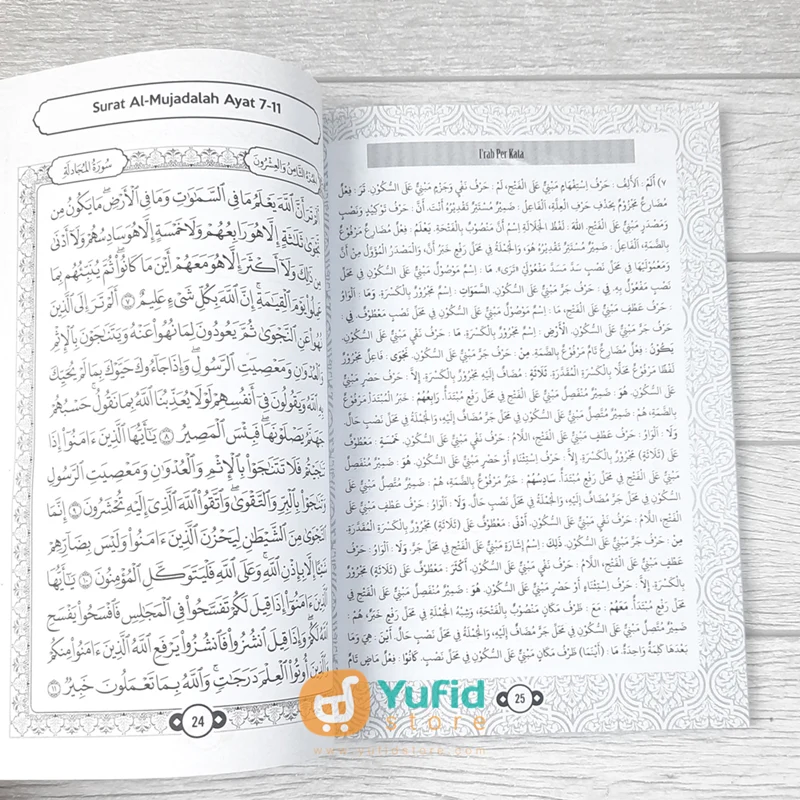 Surat Al-Mujadalah Ayat 7-11
الجُزْءُ الثَّامِنُ وَالعِشْرُونَ
سُورَةُ المُجَادلَةِ
أَلَمْ تَرَ أَنَّ ٱللَّهَ يَعْلَمُ مَا فِى ٱلسَّمَٰوَٰتِ وَمَا فِى ٱلْأَرْضِ مَا يَكُونُ مِن
نَّجْوَىٰ ثَلَٰثَةٍ إِلَّا هُوَ رَابِعُهُمْ وَلَا خَمْسَةٍ إِلَّا هُوَ سَادِسُهُمْ وَلَآ أَدْنَىٰ
مِن ذَٰلِكَ وَلَآ أَكْثَرَ إِلَّا هُوَ مَعَهُمْ أَيْنَ مَا كَانُوا۟ ثُمَّ يُنَبِّئُهُم بِمَا
عَمِلُوا۟ يَوْمَ ٱلْقِيَٰمَةِ إِنَّ ٱللَّهَ بِكُلِّ شَىْءٍ عَلِيمٌ ٧ أَلَمْ تَرَ إِلَى ٱلَّذِينَ
نُهُوا۟ عَنِ ٱلنَّجْوَىٰ ثُمَّ يَعُودُونَ لِمَا نُهُوا۟ عَنْهُ وَيَتَنَٰجَوْنَ بِٱلْإِثْمِ
وَٱلْعُدْوَٰنِ وَمَعْصِيَتِ ٱلرَّسُولِ وَإِذَا جَآءُوكَ حَيَّوْكَ بِمَا لَمْ يُحَيِّكَ
بِهِ ٱللَّهُ وَيَقُولُونَ فِىٓ أَنفُسِهِمْ لَوْلَا يُعَذِّبُنَا ٱللَّهُ بِمَا نَقُولُ حَسْبُهُمْ
جَهَنَّمُ يَصْلَوْنَهَا فَبِئْسَ ٱلْمَصِيرُ ٨ يَٰٓأَيُّهَا ٱلَّذِينَ ءَامَنُوٓا۟ إِذَا
تَنَٰجَيْتُمْ فَلَا تَتَنَٰجَوْا۟ بِٱلْإِثْمِ وَٱلْعُدْوَٰنِ وَمَعْصِيَتِ ٱلرَّسُولِ
وَتَنَٰجَوْا۟ بِٱلْبِرِّ وَٱلتَّقْوَىٰ وَٱتَّقُوا۟ ٱللَّهَ ٱلَّذِىٓ إِلَيْهِ تُحْشَرُونَ ٩ إِنَّمَا
ٱلنَّجْوَىٰ مِنَ ٱلشَّيْطَٰنِ لِيَحْزُنَ ٱلَّذِينَ ءَامَنُوا۟ وَلَيْسَ بِضَآرِّهِمْ
شَيْـًٔا إِلَّا بِإِذْنِ ٱللَّهِ وَعَلَى ٱللَّهِ فَلْيَتَوَكَّلِ ٱلْمُؤْمِنُونَ ١٠ يَٰٓأَيُّهَا
ٱلَّذِينَ ءَامَنُوٓا۟ إِذَا قِيلَ لَكُمْ تَفَسَّحُوا۟ فِى ٱلْمَجَٰلِسِ فَٱفْسَحُوا۟ يَفْسَحِ
ٱللَّهُ لَكُمْ وَإِذَا قِيلَ ٱنشُزُوا۟ فَٱنشُزُوا۟ يَرْفَعِ ٱللَّهُ ٱلَّذِينَ ءَامَنُوا۟ مِنكُمْ
وَٱلَّذِينَ أُوتُوا۟ ٱلْعِلْمَ دَرَجَٰتٍ وَٱللَّهُ بِمَا تَعْمَلُونَ خَبِيرٌ ١١
24
I'rab Per Kata
٧) أَلَمْ: الأَلِفُ: حَرْفُ اِسْتِفْهَامٍ مَبْنِيٌّ عَلَى الْفَتْحِ، لَمْ: حَرْفُ نَفْيٍ وَجَزْمٍ مَبْنِيٌّ عَلَى السُّكُوْنِ. تَرَ: فِعْلٌ
مُضَارِعٌ مَجْزُوْمٌ بِحَذْفِ حَرْفِ الْعِلَّةِ، الْفَاعِلُ: ضَمِيْرٌ مُسْتَتِرٌ تَقْدِيْرُهُ أَنْتَ. أَنَّ: حَرْفُ تَوْكِيْدٍ وَنَصْبٍ
وَمَصْدَرٍ مَبْنِيٌّ عَلَى الْفَتْحِ. اللهَ: لَفْظُ الْجَلَالَةِ اِسْمُ أَنَّ مَنْصُوْبٌ بِالْفَتْحَةِ. يَعْلَمُ: فِعْلٌ مُضَارِعٌ مَرْفُوْعٌ
بِالضَّمَّةِ، الْفَاعِلُ: ضَمِيْرٌ مُسْتَتِرٌ تَقْدِيْرُهُ هُوَ، وَالْجُمْلَةُ فِيْ مَحَلِّ رَفْعٍ خَبَرُ أَنَّ، وَالْمَصْدَرُ الْمُؤَوَّلُ مِنْ أَنَّ
وَمَعْمُوْلَيْهَا فِيْ مَحَلِّ نَصْبٍ سَدَّ مَسَدَّ مَفْعُوْلَيْ «تَرَى». مَا: اِسْمُ مَوْصُوْلٍ مَبْنِيٌّ عَلَى السُّكُوْنِ فِيْ مَحَلِّ
نَصْبٍ مَفْعُوْلٌ بِهِ. فِيْ: حَرْفُ جَرٍّ مَبْنِيٌّ عَلَى السُّكُوْنِ. السَّمَوَاتِ: اِسْمٌ مَجْرُوْرٌ بِالْكَسْرَةِ. وَمَا: الْوَاوُ
حَرْفُ عَطْفٍ مَبْنِيٌّ عَلَى الْفَتْحِ، مَا: اِسْمُ مَوْصُوْلٍ مَبْنِيٌّ عَلَى السُّكُوْنِ مَعْطُوْفٌ. فِيْ:
حَرْفُ جَرٍّ مَبْنِيٌّ عَلَى السُّكُوْنِ. الْأَرْضِ: اِسْمٌ مَجْرُوْرٌ بِالْكَسْرَةِ. مَا: حَرْفُ نَفْيٍ مَبْنِيٌّ عَلَى السُّكُوْنِ.
يَكُوْنُ: فِعْلٌ مُضَارِعٌ تَامٌّ مَرْفُوْعٌ بِالضَّمَّةِ. مِنْ: حَرْفُ جَرٍّ مَبْنِيٌّ عَلَى السُّكُوْنِ. نَجْوَى: فَاعِلٌ مَجْرُوْرٌ
لَفْظًا مَرْفُوْعٌ مَحَلًّا بِالْكَسْرَةِ. ثَلَاثَةٍ: مُضَافٌ إِلَيْهِ مَجْرُوْرٌ بِالْكَسْرَةِ. إِلَّا: حَرْفُ حَصْرٍ مَبْنِيٌّ
عَلَى السُّكُوْنِ. هُوَ: ضَمِيْرٌ مُنْفَصِلٌ مَبْنِيٌّ عَلَى الْفَتْحِ فِيْ مَحَلِّ رَفْعٍ مُبْتَدَأٌ. رَابِعُهُمْ: خَبَرُ الْمُبْتَدَأِ مَرْفُوْعٌ
بِالضَّمَّةِ، هُمْ: ضَمِيْرٌ مُتَّصِلٌ مَبْنِيٌّ عَلَى السُّكُوْنِ فِيْ مَحَلِّ جَرٍّ مُضَافٌ إِلَيْهِ، وَالْجُمْلَةُ فِيْ مَحَلِّ نَصْبٍ حَالٌ.
وَلَا: الْوَاوُ: حَرْفُ عَطْفٍ مَبْنِيٌّ عَلَى الْفَتْحِ، اللَّامُ: حَرْفُ نَفْيٍ مَبْنِيٌّ عَلَى السُّكُوْنِ. خَمْسَةٍ: مَعْطُوْفٌ
عَلَى (ثَلَاثَةٍ) مَجْرُوْرٌ بِالْكَسْرَةِ. إِلَّا: حَرْفُ اِسْتِثْنَاءٍ أَوْ حَصْرٍ مَبْنِيٌّ عَلَى السُّكُوْنِ. هُوَ: ضَمِيْرٌ مُنْفَصِلٌ
مَبْنِيٌّ عَلَى الْفَتْحِ فِيْ مَحَلِّ رَفْعٍ مُبْتَدَأٌ. سَادِسُهُمْ: خَبَرُ الْمُبْتَدَأِ مَرْفُوْعٌ بِالضَّمَّةِ، هُمْ: ضَمِيْرٌ مُتَّصِلٌ مَبْنِيٌّ
عَلَى السُّكُوْنِ فِيْ مَحَلِّ جَرٍّ مُضَافٌ إِلَيْهِ، وَالْجُمْلَةُ فِيْ مَحَلِّ نَصْبٍ حَالٌ. وَلَا: الْوَاوُ: حَرْفُ عَطْفٍ مَبْنِيٌّ عَلَى
الْفَتْحِ، اللَّامُ: حَرْفُ نَفْيٍ مَبْنِيٌّ عَلَى السُّكُوْنِ. أَدْنَى: مَعْطُوْفٌ عَلَى (ثَلَاثَةٍ) مَجْرُوْرٌ بِالْكَسْرَةِ الْمُقَدَّرَةِ.
مِنْ: حَرْفُ جَرٍّ مَبْنِيٌّ عَلَى السُّكُوْنِ. ذَلِكَ: اِسْمُ إِشَارَةٍ مَبْنِيٌّ عَلَى الْفَتْحِ فِيْ مَحَلِّ جَرٍّ. وَلَا: الْوَاوُ: حَرْفُ
عَطْفٍ مَبْنِيٌّ عَلَى الْفَتْحِ، اللَّامُ: حَرْفُ نَفْيٍ مَبْنِيٌّ عَلَى السُّكُوْنِ. أَكْثَرَ: مَعْطُوْفٌ عَلَى (ثَلَاثَةٍ) مَجْرُوْرٌ
بِالْكَسْرَةِ. إِلَّا: حَرْفُ اِسْتِثْنَاءٍ أَوْ حَصْرٍ مَبْنِيٌّ عَلَى السُّكُوْنِ. هُوَ: ضَمِيْرٌ مُنْفَصِلٌ مَبْنِيٌّ عَلَى الْفَتْحِ فِيْ
مَحَلِّ رَفْعٍ مُبْتَدَأٌ. مَعَهُمْ: مَعَ: ظَرْفُ مَكَانٍ مَنْصُوْبٌ بِالْفَتْحَةِ، وَشِبْهُ الْجُمْلَةِ فِيْ مَحَلِّ رَفْعٍ خَبَرٌ، هُمْ:
ضَمِيْرٌ مُتَّصِلٌ مَبْنِيٌّ عَلَى السُّكُوْنِ فِيْ مَحَلِّ جَرٍّ مُضَافٌ إِلَيْهِ، وَالْجُمْلَةُ فِيْ مَحَلِّ نَصْبٍ حَالٌ. أَيْنَ: هِيَ وَمَا
بَعْدَهَا كَلِمَةٌ وَاحِدَةٌ. مَا: (أَيْنَمَا): ظَرْفُ مَكَانٍ مَبْنِيٌّ عَلَى السُّكُوْنِ فِيْ مَحَلِّ نَصْبٍ. كَانُوْا: فِعْلٌ مَاضٍ تَامٌّ
25
Yufid
store
www.yufidstore.com